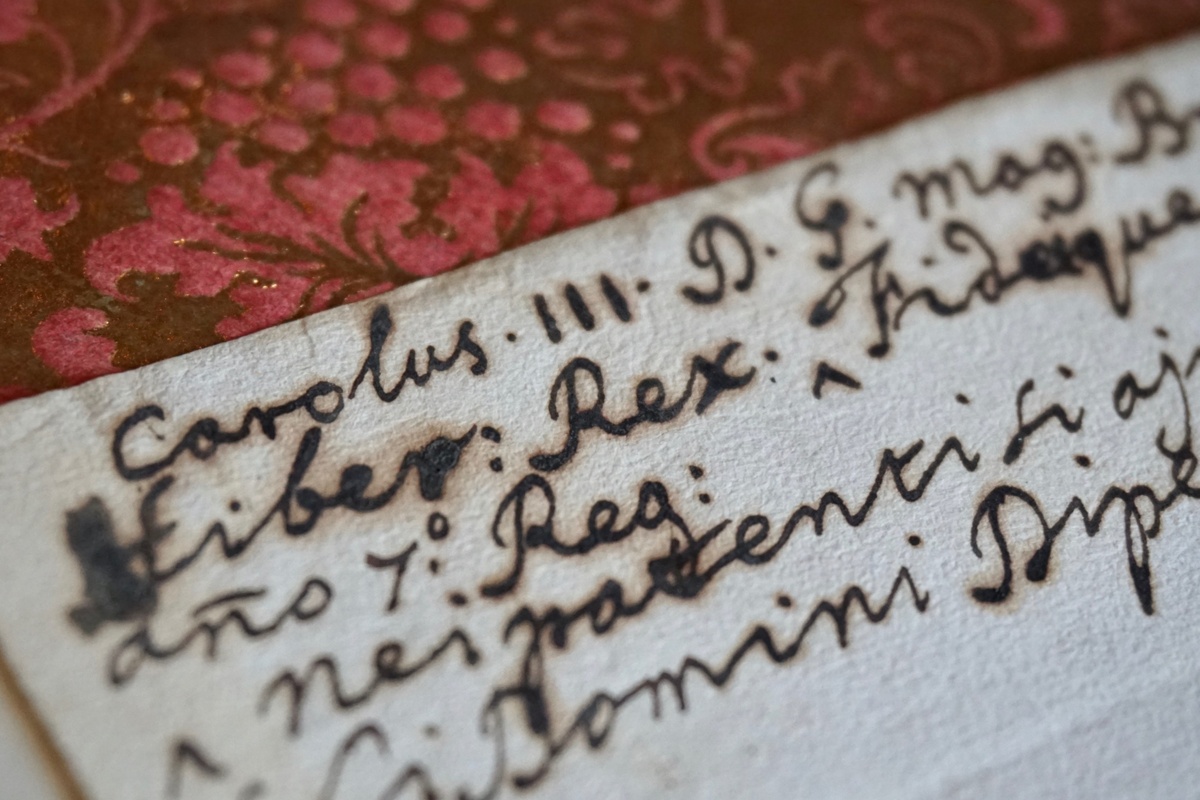 Carolus. III. D. G. mag: B
Fiber: Rex: Fideique
año 7º: Reg:
nei patenti si aj
Domini Dipe